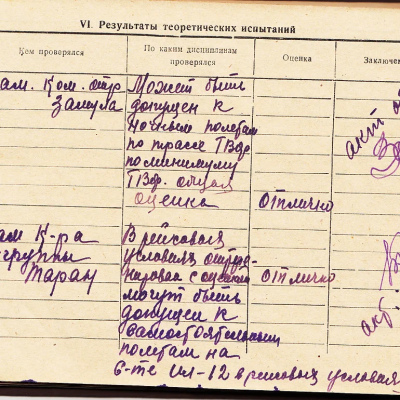 VI. Результаты теоретических испытаний
Кем проверялся
По каким дисциплинам проверялся
Оценка
Заключе
ам. Ком. отр.
Замула
Может быть
допущен к
ночным полетам
по трассе
по минимуму
общая
оценка
отлично
акт
ам К-ра
группы
Таран
В рейсовых
условиях
с оценкой
отлично
могут быть
допущен к
самостоятельным
полетам на
с-те Ил-12 в рейсовых условиях
акт.